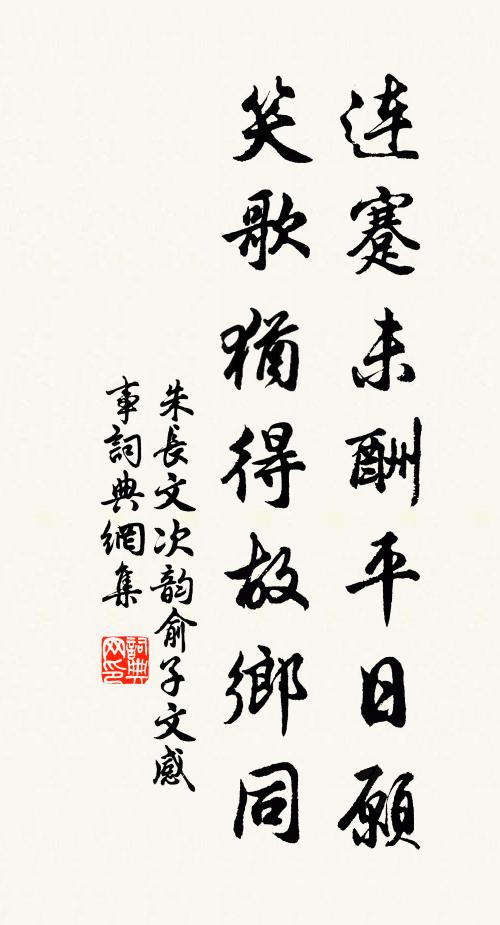 连蹇未酬平日願
笑歌猶得故鄉同
朱長文次韵俞子文感
事詞典網集
詞典
网印